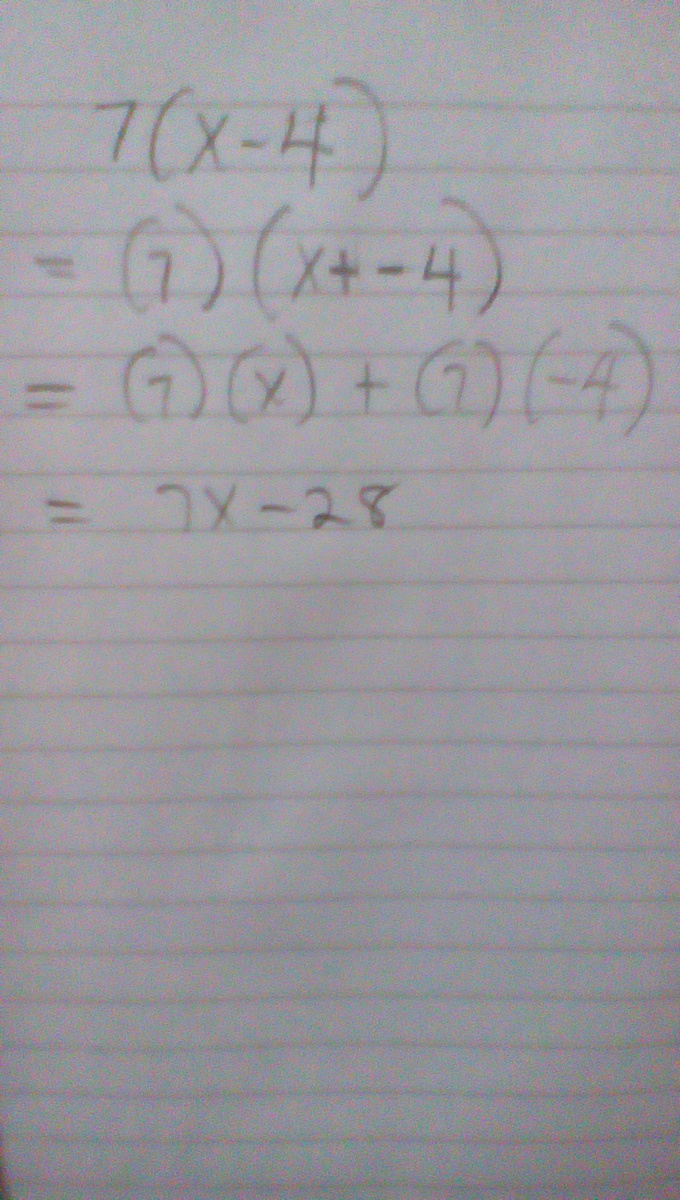 7(x-4)
= (7)(x+-4)
= (7)(x) + (7)(-4)
= 7x-28